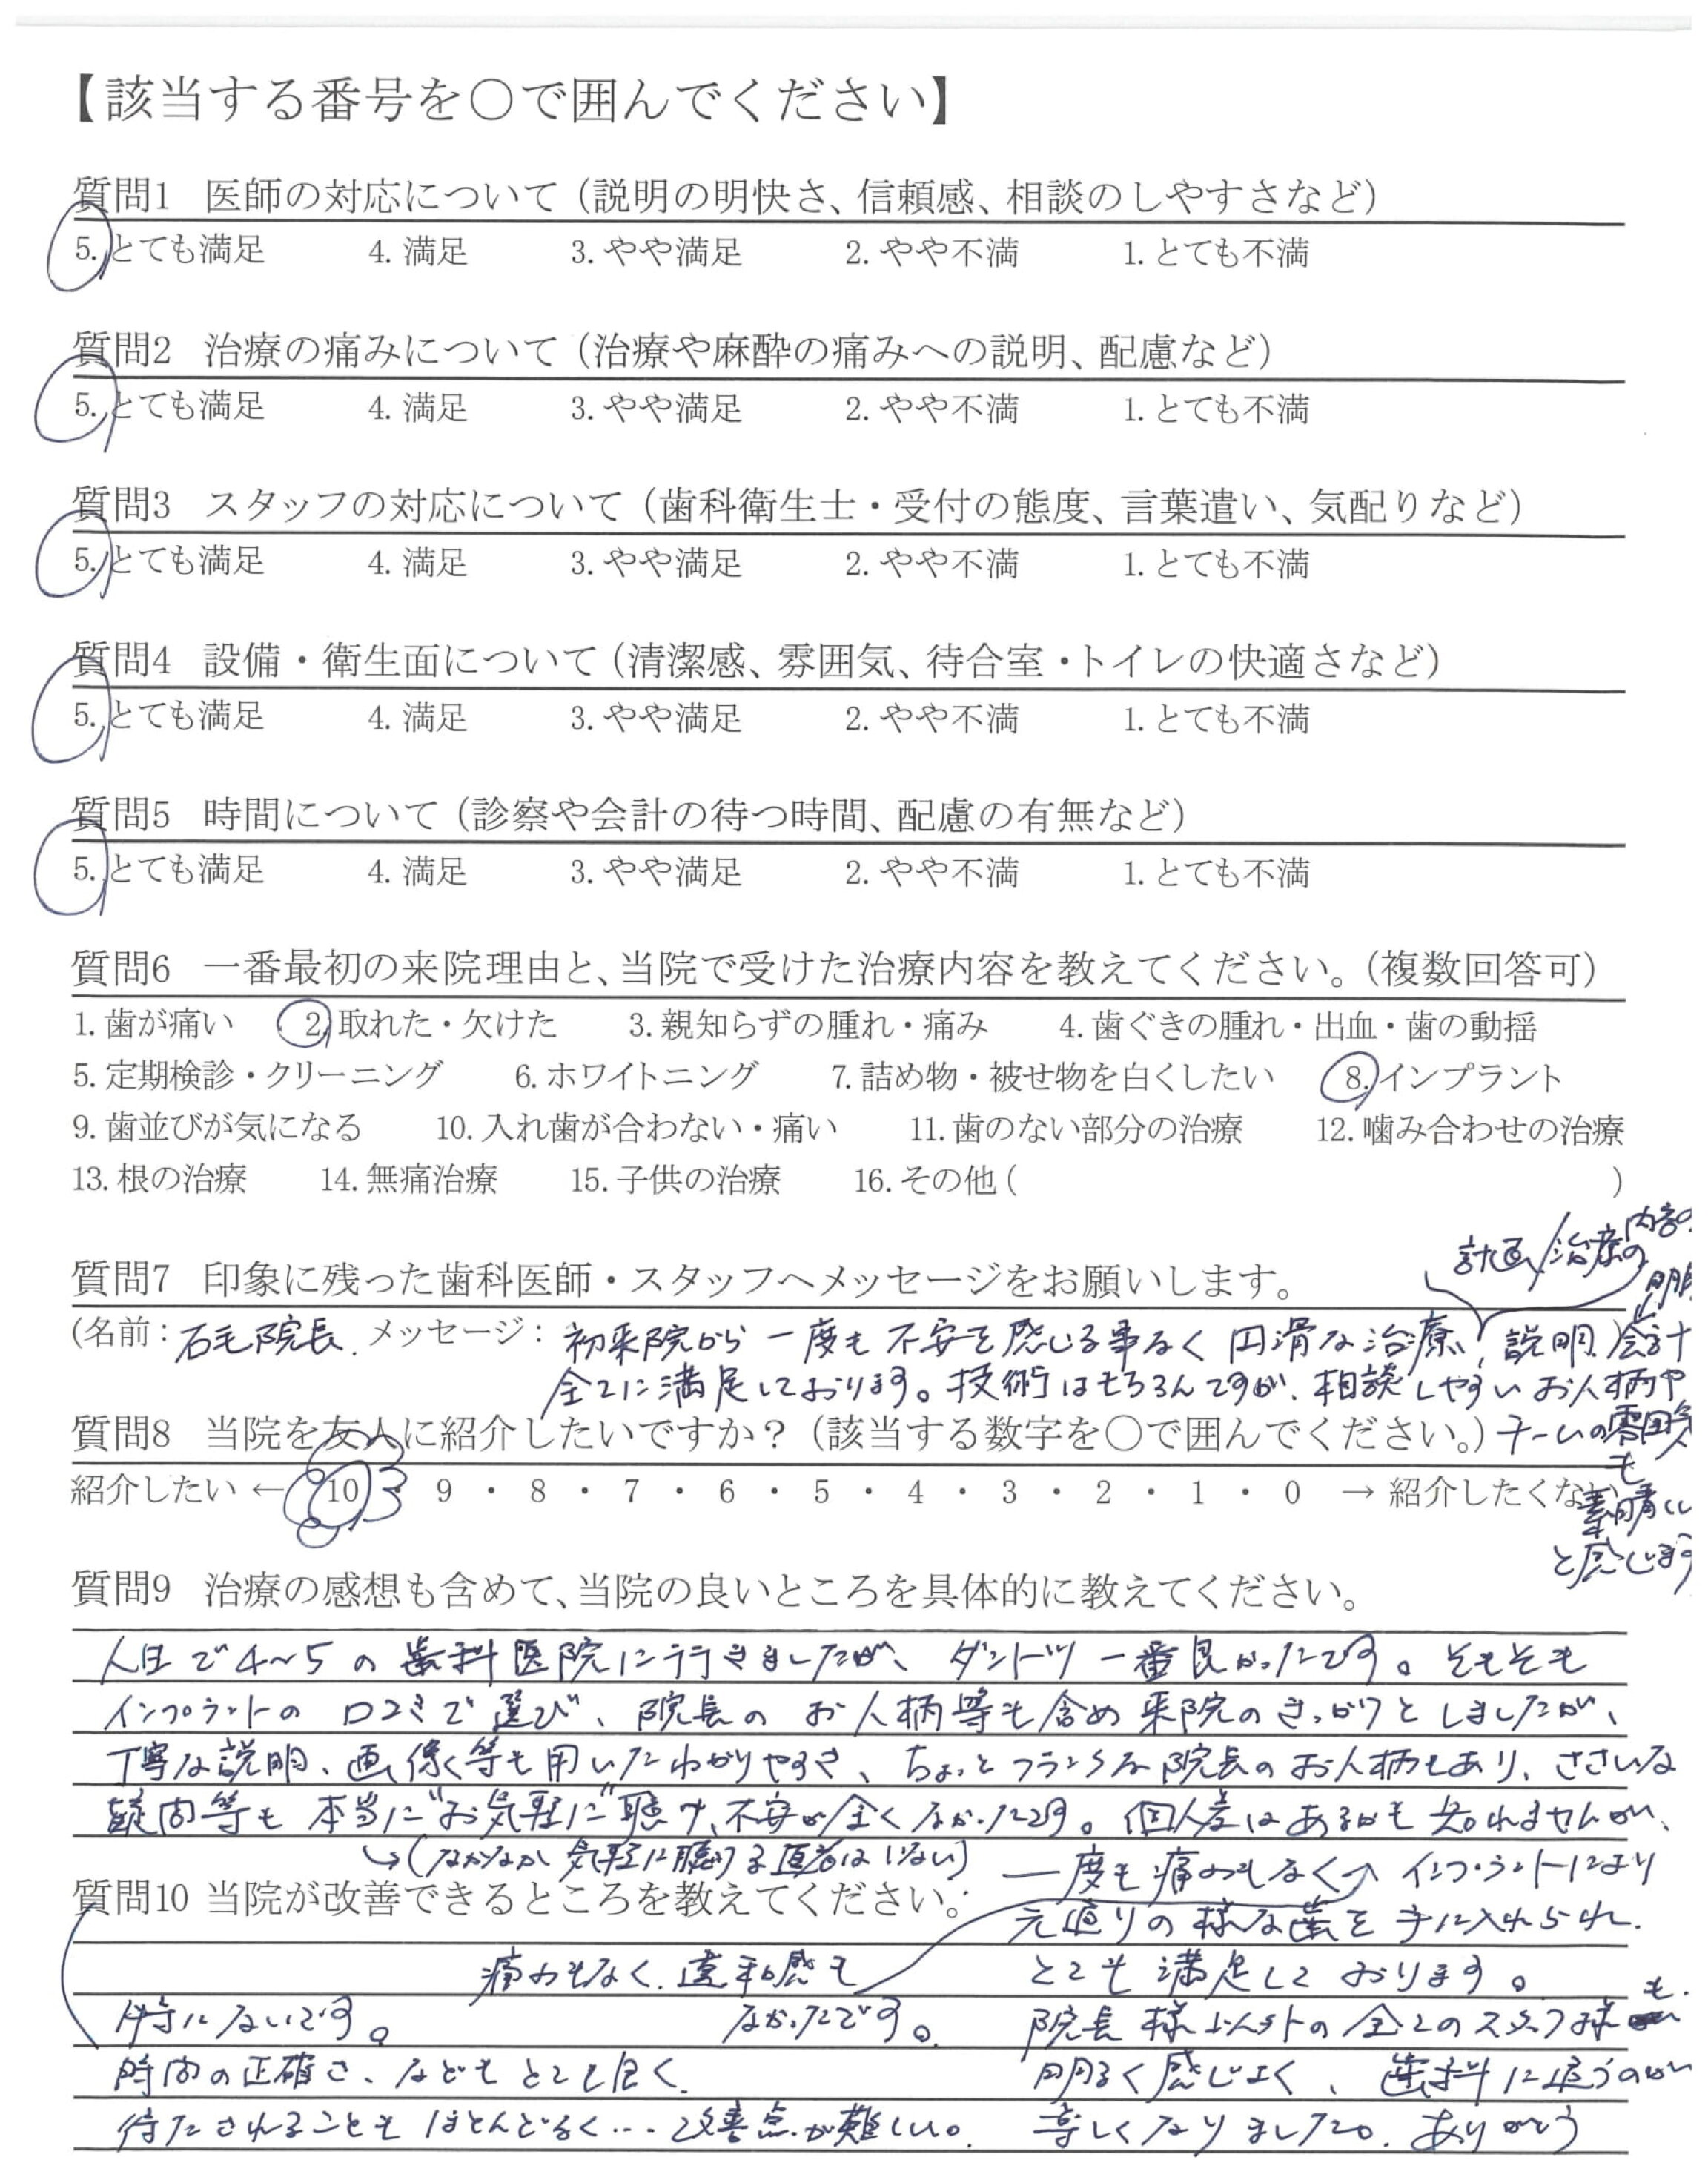 【該当する番号を〇で囲んでください】
質問1 医師の対応について（説明の明快さ、信頼感、相談のしやすさなど）
5. とても満足 4. 満足 3. やや満足 2. やや不満 1. とても不満
質問2 治療の痛みについて（治療や麻酔の痛みへの説明、配慮など）
5. とても満足 4. 満足 3. やや満足 2. やや不満 1. とても不満
質問3 スタッフの対応について（歯科衛生士・受付の態度、言葉遣い、気配りなど）
5. とても満足 4. 満足 3. やや満足 2. やや不満 1. とても不満
質問4 設備・衛生面について（清潔感、雰囲気、待合室・トイレの快適さなど）
5. とても満足 4. 満足 3. やや満足 2. やや不満 1. とても不満
質問5 時間について（診察や会計の待つ時間、配慮の有無など）
5. とても満足 4. 満足 3. やや満足 2. やや不満 1. とても不満
質問6 一番最初の来院理由と、当院で受けた治療内容を教えてください。（複数回答可）
1. 歯が痛い 2. 取れた・欠けた 3. 親知らずの腫れ・痛み 4. 歯ぐきの腫れ・出血・歯の動揺
5. 定期検診・クリーニング 6. ホワイトニング 7. 詰め物・被せ物を白くしたい 8. インプラント
9. 歯並びが気になる 10. 入れ歯が合わない・痛い 11. 歯のない部分の治療 12. 噛み合わせの治療
13. 根の治療 14. 無痛治療 15. 子供の治療 16. その他（ ）
質問7 印象に残った歯科医師・スタッフへメッセージをお願いします。
計画/治療内容の
（名前：石毛院長. メッセージ：初来院から一度も不安を感じる事なく円滑な治療、説明、会計
全てに満足しております。技術はもちろんですが、相談しやすいお人柄や
チームの雰囲気
も
素晴しい
と感じます
質問8 当院を友人に紹介したいですか？（該当する数字を〇で囲んでください。）
紹介したい ← 10 ・ 9 ・ 8 ・ 7 ・ 6 ・ 5 ・ 4 ・ 3 ・ 2 ・ 1 ・ 0 → 紹介したくない
質問9 治療の感想も含めて、当院の良いところを具体的に教えてください。
人生で4~5の歯科医院に行きましたが、ダントツ一番良かったです。そもそも
インプラントの口コミで選び、院長のお人柄等も含め来院のきっかけとしましたが、
丁寧な説明、画像等も用いたわかりやすさ、ちょっとフランクな院長のお人柄もあり、ささいな
疑問等も本当に"お気軽に"聴け、不安が全くなかったです。個人差はあるかも知れませんが、
↳(なかなか気軽に聴ける医者はいない)
一度も痛みもなく インプラントにより
元通りの様な歯を手に入れられ、
とても満足しております。
院長様以外の全てのスタッフ様も、
明るく感じよく、歯科に通うのが
楽しくなりました。ありがとう
質問10 当院が改善できるところを教えてください。
痛みもなく、違和感も
なかったです。
特にないです。
時間の正確さ、などもとても良く、
待たされることもほとんどなく…改善点が難しい。